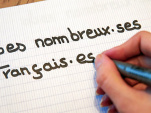 les nombreux·ses
Français·es